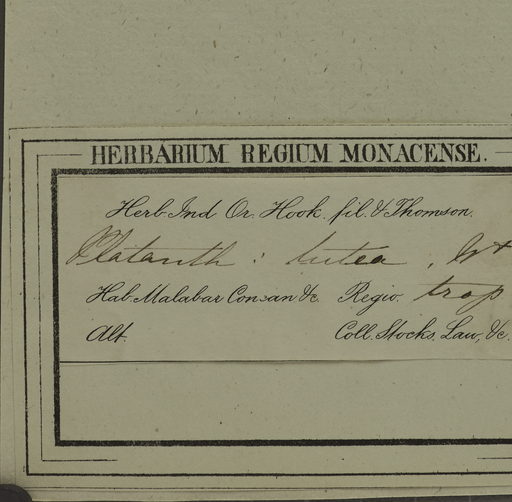 HERBARIUM REGIUM MONACENSE.
Herb. Ind Or. Hook. fil. & Thomson.
Platanth : lutea , Wt
Hab. Malabar Concan &c. Regio. trop
Alt. Coll. Stocks, Law, &c.